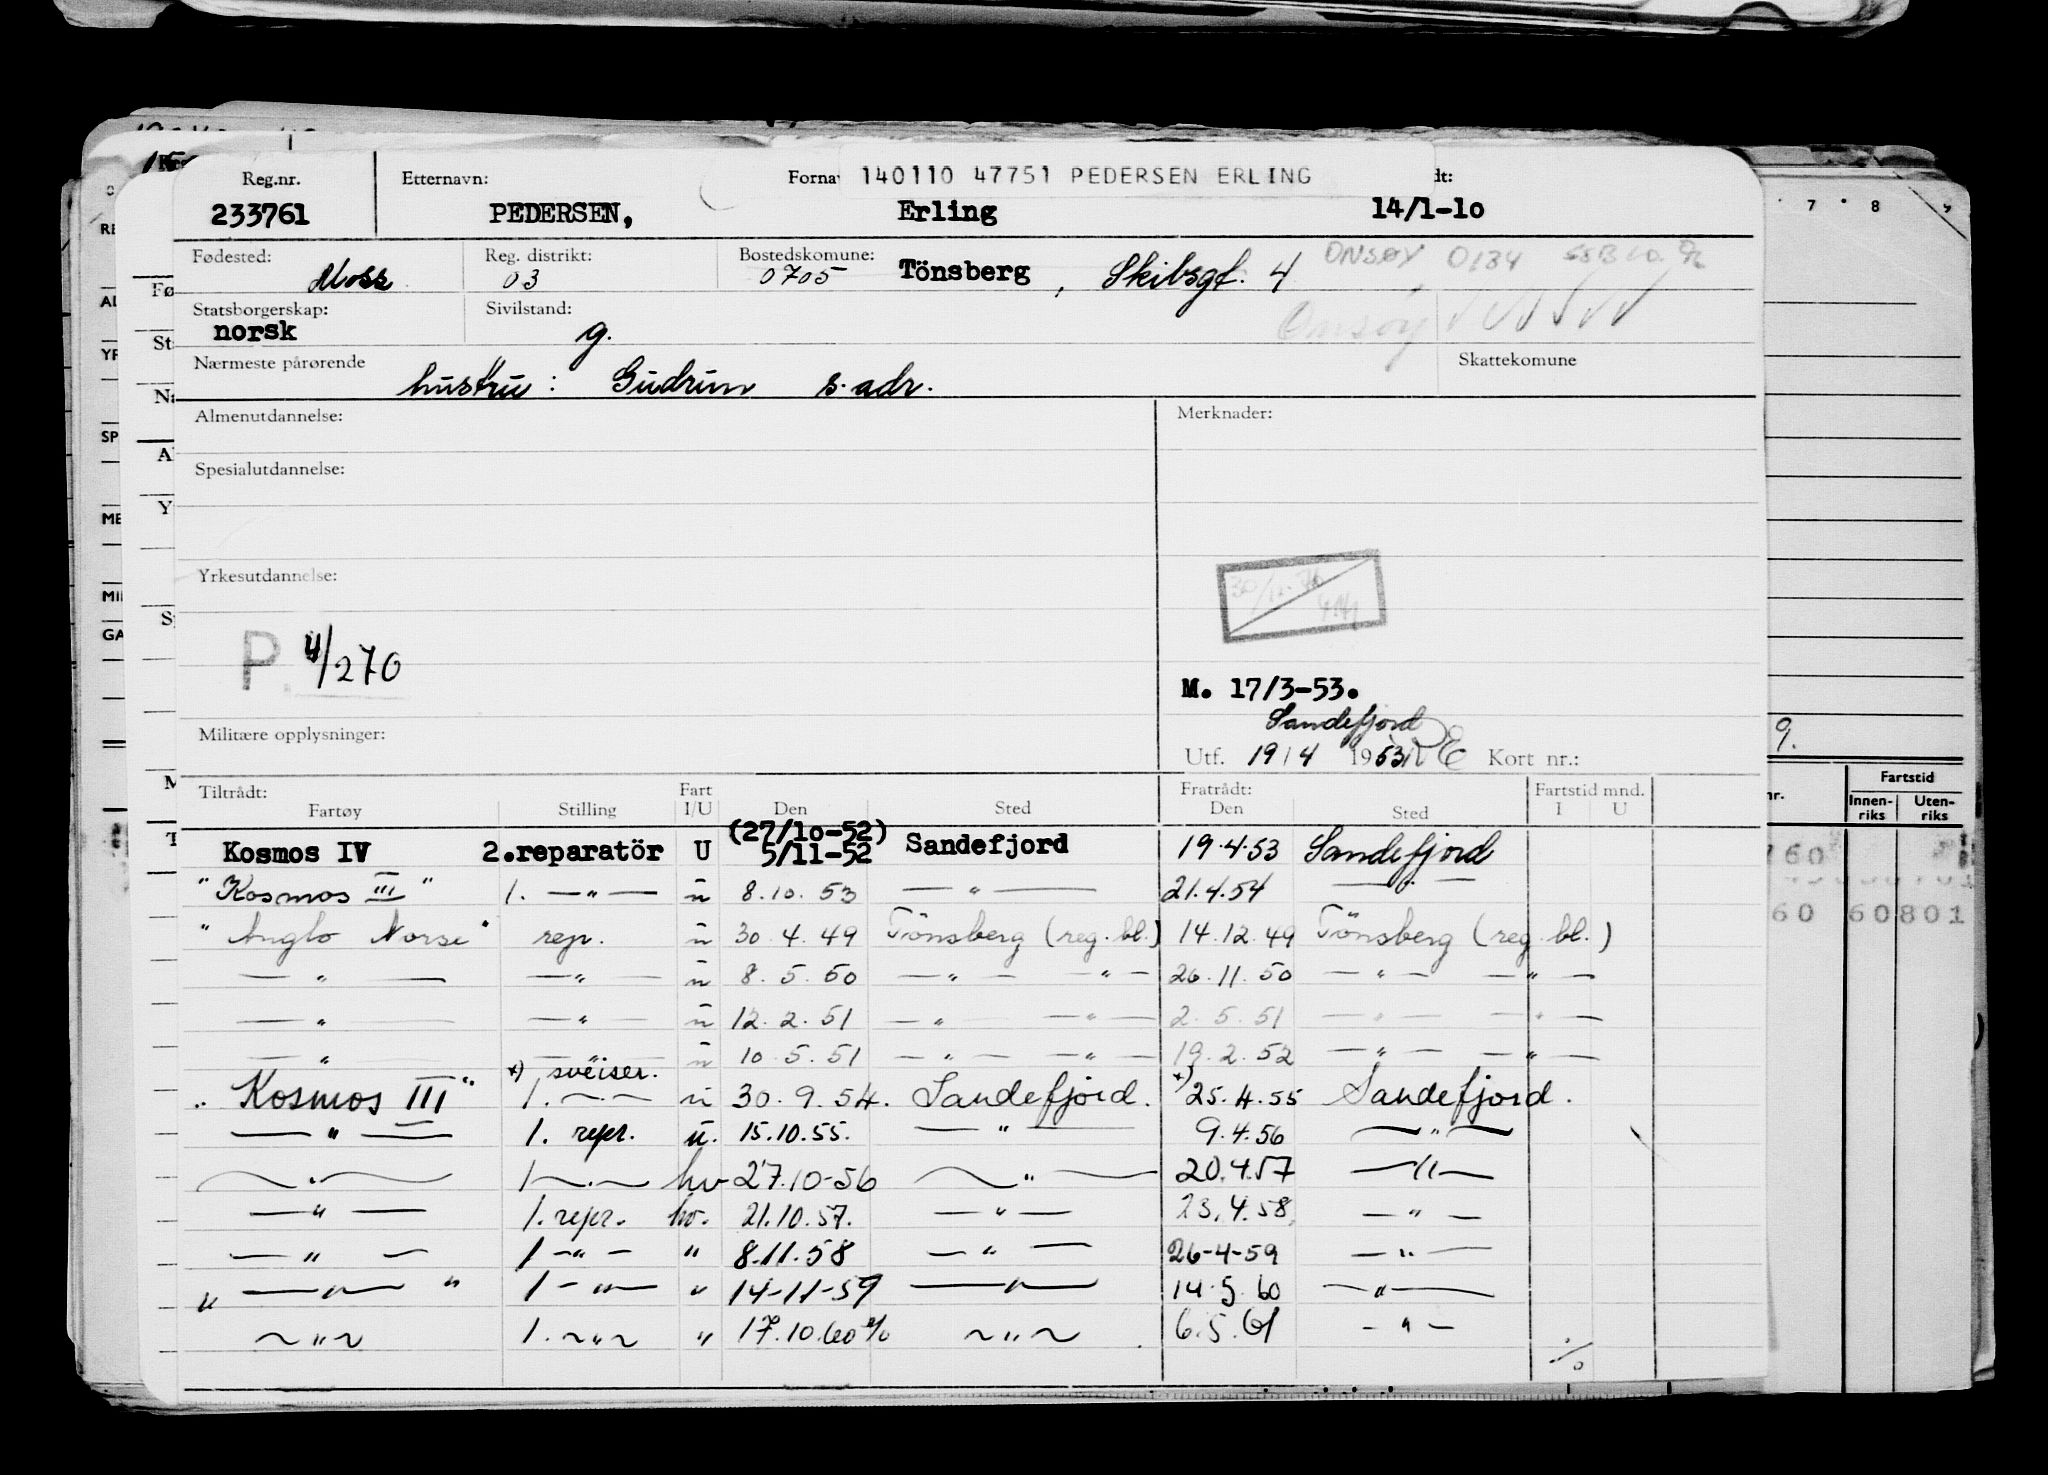 Reg.nr. Etternavn: Forna 140110 47751 PEDERSEN ERLING dt:
233761 PEDERSEN, Erling 14/1-10
Fødested: Reg. distrikt: Bostedskomune: ONSØY 0134
Moss 03 0705 Tönsberg, Skibsgt. 4
Statsborgerskap: Sivilstand: Onsøy
norsk g.
Nærmeste pårørende Skattekomune
hustru: Gudrun s. adr.
Almenutdannelse: Merknader:
Spesialutdannelse:
Yrkesutdannelse:
30/12-76
P. 4/270
M. 17/3-53.
Sandefjord
Militære opplysninger: Utf. 19/4 1953 Kort nr.:
Tiltrådt: Fart Fratrådt: Fartstid mnd.
Fartøy Stilling I/U Den Sted Den Sted I U
(27/10-52)
Kosmos IV 2.reparatör U 5/11-52 Sandefjord 19.4.53 Sandefjord
"Kosmos III" 1. — " — u 8.10.53 — " — 21.4.54 — " —
"Anglo Norse" rep. u 30.4.49 Tönsberg (reg. bl.) 14.12.49 Tönsberg (reg. bl.)
— " — — " — u 8.5.50 — " — — " — 26.11.50 — " — — " —
— " — — " — u 12.2.51 — " — — " — 2.5.51 — " — — " —
— " — — " — u 10.5.51 — " — — " — 19.2.52 — " — — " —
x) sveiser. x)
"Kosmos III" 1. — " — u 30.9.54. Sandefjord. 25.4.55 Sandefjord.
— " — 1. repr. u. 15.10.55. — " — 9.4.56 — " —
— " — 1 — " — hv 27.10-56 — " — 20.4.57 — " —
— " — 1. repr. hv. 21.10.57. — " — 23.4.58. — " —
— " — 1 — " — " 8.11.58 — " — 26-4-59 — " —
" — " — " 1 — " — " 14-11-59 — " — 14.5.60 — " —
~ " ~ 1. ~ " ~ " 17.10.60 ~ " ~ 6.5.61 - " -
7 8 9
9.
Fartstid
nr. Innen-riks Uten-riks
760
60 60801